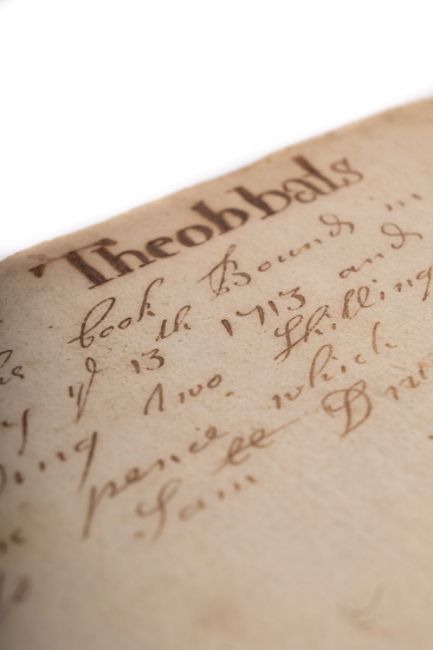 Theobbals
book Bound in
yͤ 13 th 1713 and
ing two Shilling
pence which
Sam